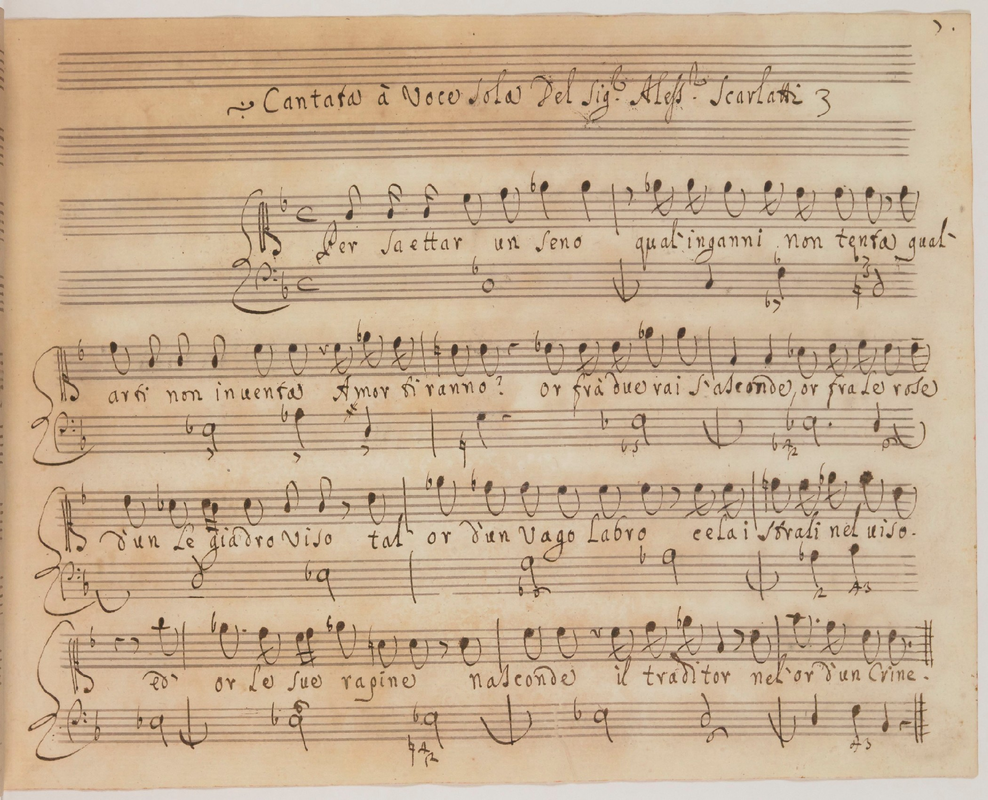 Cantata à Voce sola Del Sig.r Aless.o Scarlatti 3
Per saettar un seno qual'inganni non tenta qual'
arti non inventa Amor tiranno? or frà due rai s'asconde, or fra le rose
d'un leggiadro viso tal' or d'un vago labro cela i strali nel viso.
ed' or le sue rapine nasconde il traditor nel'or d'un Crine.